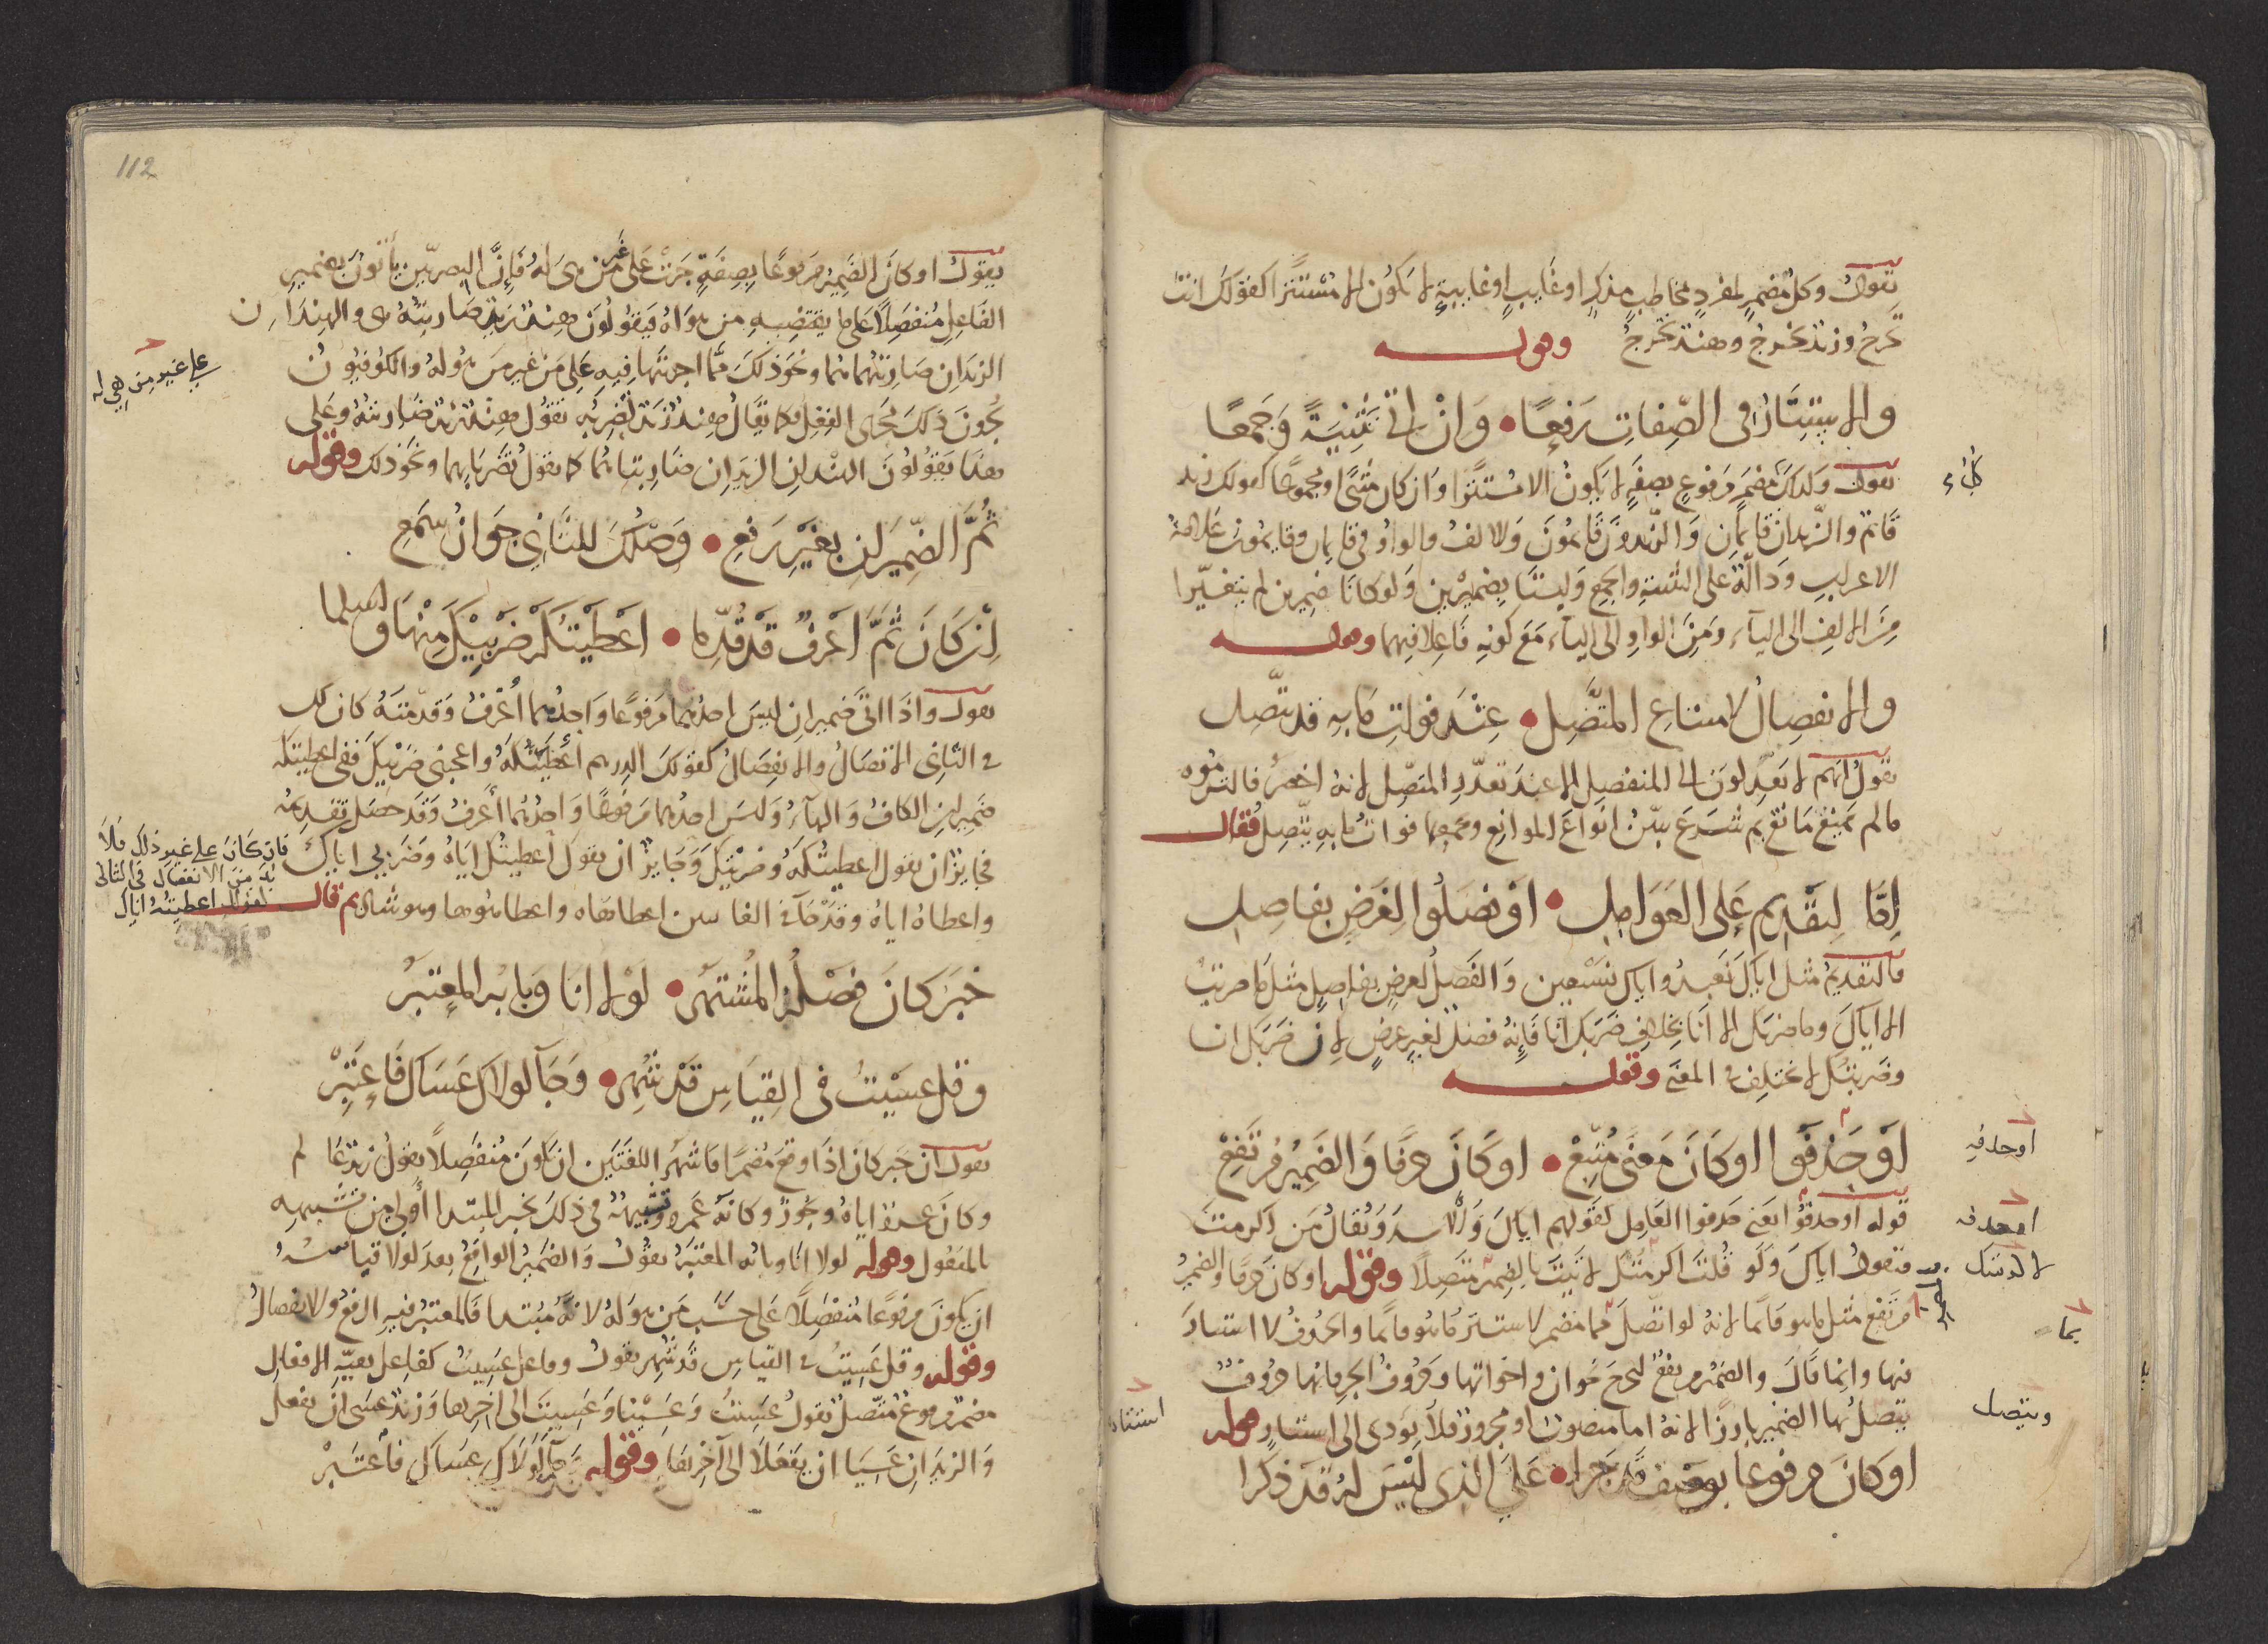 يقول وكل مضمر لمفرد مخاطب مذكر او غايب او غايبة لا يكون الا مستترا كقولك انت
تخرج وزيد يخرج وهند تخرج وقوله
والاستتار في الصفات رفعا • وان اتى تثنية وجمعا
يقول وكذلك كل مضمر مرفوع بصفة لا يكون الا مستترا وان كان مثنى او مجموعا كقولك زيد
قائم والزيدان قايمان والزيدون قايمون والالف والواو في قايمان وقايمون علامة
الاعراب ودالة على التثنية والجمع وليستا بضميرين ولو كانا ضميرين لم يتغيرا
من الالف الى الياء ومن الواو الى الياء مع كونه فاعلا فيهما وقوله
والانفصال لامتناع المتصل • عند فوات ما به قد يتصل
يقول انهم لا يعدلون الى المنفصل الا عند تعذر المتصل لانه اخصر فالتزموه
ما لم يمنع مانع ثم شرع يبين انواع الموانع ويجمعها فوات ما به يتصل فقال
اما لتقديم على العوامل • او فصلوا لغرض بفاصل
فالتقديم مثل اياك نعبد واياك نستعين والفصل لغرض بفاصل مثل ما ضربت
الا اياك وما ضربك الا انا بخلاف ضربك انا فانه فصل لغير غرض لان ضربك انا
وضربتك لا يختلف في المعنى وقوله
او حذفوا او كان معنى متبع • او كان حرفا والضمير مرتفع
قوله او حذفوا يعني حذفوا العامل كقولهم اياك والاسد ويقال من اكرمت
فتقول اياك ولو قلت اكرمتك لاتيت بالضمير متصلا وقوله او كان حرفا والضمير
مرتفع مثل ما هو قائما لانه لو اتصل بما مضمر لاستتر ما هو قائما والحروف لا استتار
فيها وانما قال والضمير مرتفع ليخرج نحو ان واخواتها وحروف الجر فانها حروف
يتصل بها الضمير بارزا لانه اما منصوب او مجرور فلا يؤدى الى استتار وقوله
او كان مرفوعا بوصف قد جرا • على الذي ليس له قد ذكرا
او حذفه
بما
ويتصل
استتار
112
يقول او كان الضمير مرفوعا بصفة جرت على غير من هى له فإن البصريين يأتون بضمير
الفاعل منفصلا على ما يقتضيه من هو له فيقولون هند زيد ضاربته هى والهندان
الزيدان ضاربتهما هما ونحو ذلك مما اجريتها فيه على من غير من هو له والكوفيون
يجرون ذلك مجرى الفعل فكما يقال هند زيد تضربه تقول هند زيد ضاربته وعلى
هذا يقولون الهندان الزيدان ضاربتاهما كما يقول تضربانهما ونحو ذلك وقوله
ثم الضميران بغير رفع • وصلك للثاني جوازا سمع
ان كان ثم اعرف قد قدما • اعطيتكه ضربيك منها
يقول واذا اتى ضميران ليس احدهما مرفوعا واحدهما أعرف وقدمته كان لك
في الثاني الاتصال والانفصال كقولك الدرهم أعطيتكه واعجبنى ضربيك ففى اعطيتكه
ضميران الكاف والهاء وليس احدهما مرفوعا واحدهما أعرف وقد حصل تقديمه
فجايز ان يقول اعطيتكه وضربيك وجايز ان يقول اعطيتك اياه وضربي اياك
واعطاه اياه وقد جآء في الغايبين اعطاهاه واعطاهوها وهو شاذ ثم قال
خبر كان فصله المشتهر • لولا انا وبابه المعتبر
وقل عسيت في القياس قد شهر • وجآ لولاك عساك فاعتبر
يقول ان خبر كان اذا وقع مضمرا فاشهر اللغتين ان يكون منفصلا يقول زيد عالم
وكان عمرو اياه ويجوز وكانه عمرو وتشبيهه في ذلك بخبر المبتدا أولى من تشبيهه
بالمفعول وقوله لولا انا وبابه المعتبر يقول والضمير الواقع بعد لولا قياسه
ان يكون مرفوعا منفصلا على حسب من هو له لانه مبتدا فالمعتبر فيه الرفع والانفصال
وقوله وقل عسيت في القياس قد شهر يقول وفاعل عسيت كفاعل بقية الافعال
مضمر مرفوع متصل تقول عسيت وعسينا وعسيت الى اخرها وزيد عسى ان يفعل
والزيدان عسيا ان يفعلا الى آخرها وقوله وجآ لولاك عساك فاعتبر
على غير من هى له
فان كان على غير ذلك فلا
بد من الانفصال في الثاني
كقولك اعطيته اياك